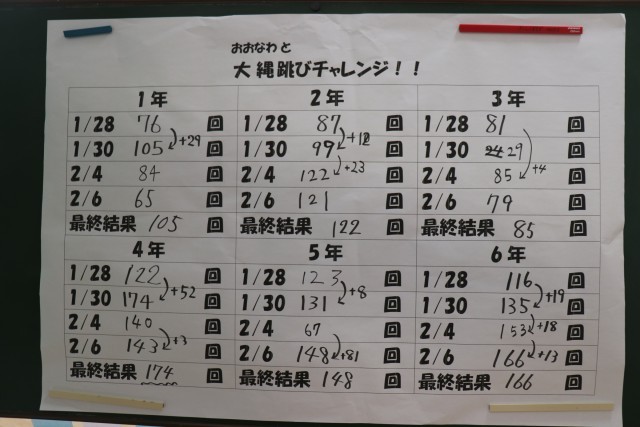 おおなわ と
大 縄 跳びチャレンジ！！
1年 2年 3年
1/28 76 回 1/28 87 回 1/28 81 回
+29 +12
1/30 105 回 1/30 99 回 1/30 29 回
+23 +4
2/4 84 回 2/4 122 回 2/4 85 回
2/6 65 回 2/6 121 回 2/6 79 回
最終結果 105 回 最終結果 122 回 最終結果 85 回
4年 5年 6年
1/28 122 回 1/28 123 回 1/28 116 回
+52 +8 +19
1/30 174 回 1/30 131 回 1/30 135 回
+18
2/4 140 回 2/4 67 回 2/4 153 回
+3 +81 +13
2/6 143 回 2/6 148 回 2/6 166 回
最終結果 174 回 最終結果 148 回 最終結果 166 回